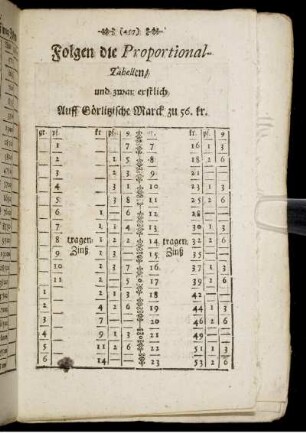 Folgen die Proportional-
Tabellen/
und zwar erstlich
Auff Görlitzische Marck zu 56. kr.
gr. pf. kr pf. 9 kr pf. 9
1 7 7 16 1 3
2 1 5 8 18 2 6
3 2 3 9 21
4 3 1 10 23 1 3
5 3 8 11 25 2 6
6 1 6 12 28
7 1 1 4 13 30 1 3
8 tragen 1 2 2 14 tragen 32 2 6
9 Zinß 1 3 15 Zinß 35
10 1 3 7 16 37 1 3
11 2 5 17 39 2 6
1 2 1 3 18 42
2 4 2 6 19 44 1 3
3 7 20 46 2 6
4 9 1 3 21 49
5 11 2 6 22 51 1 3
6 14 23 53 2 6